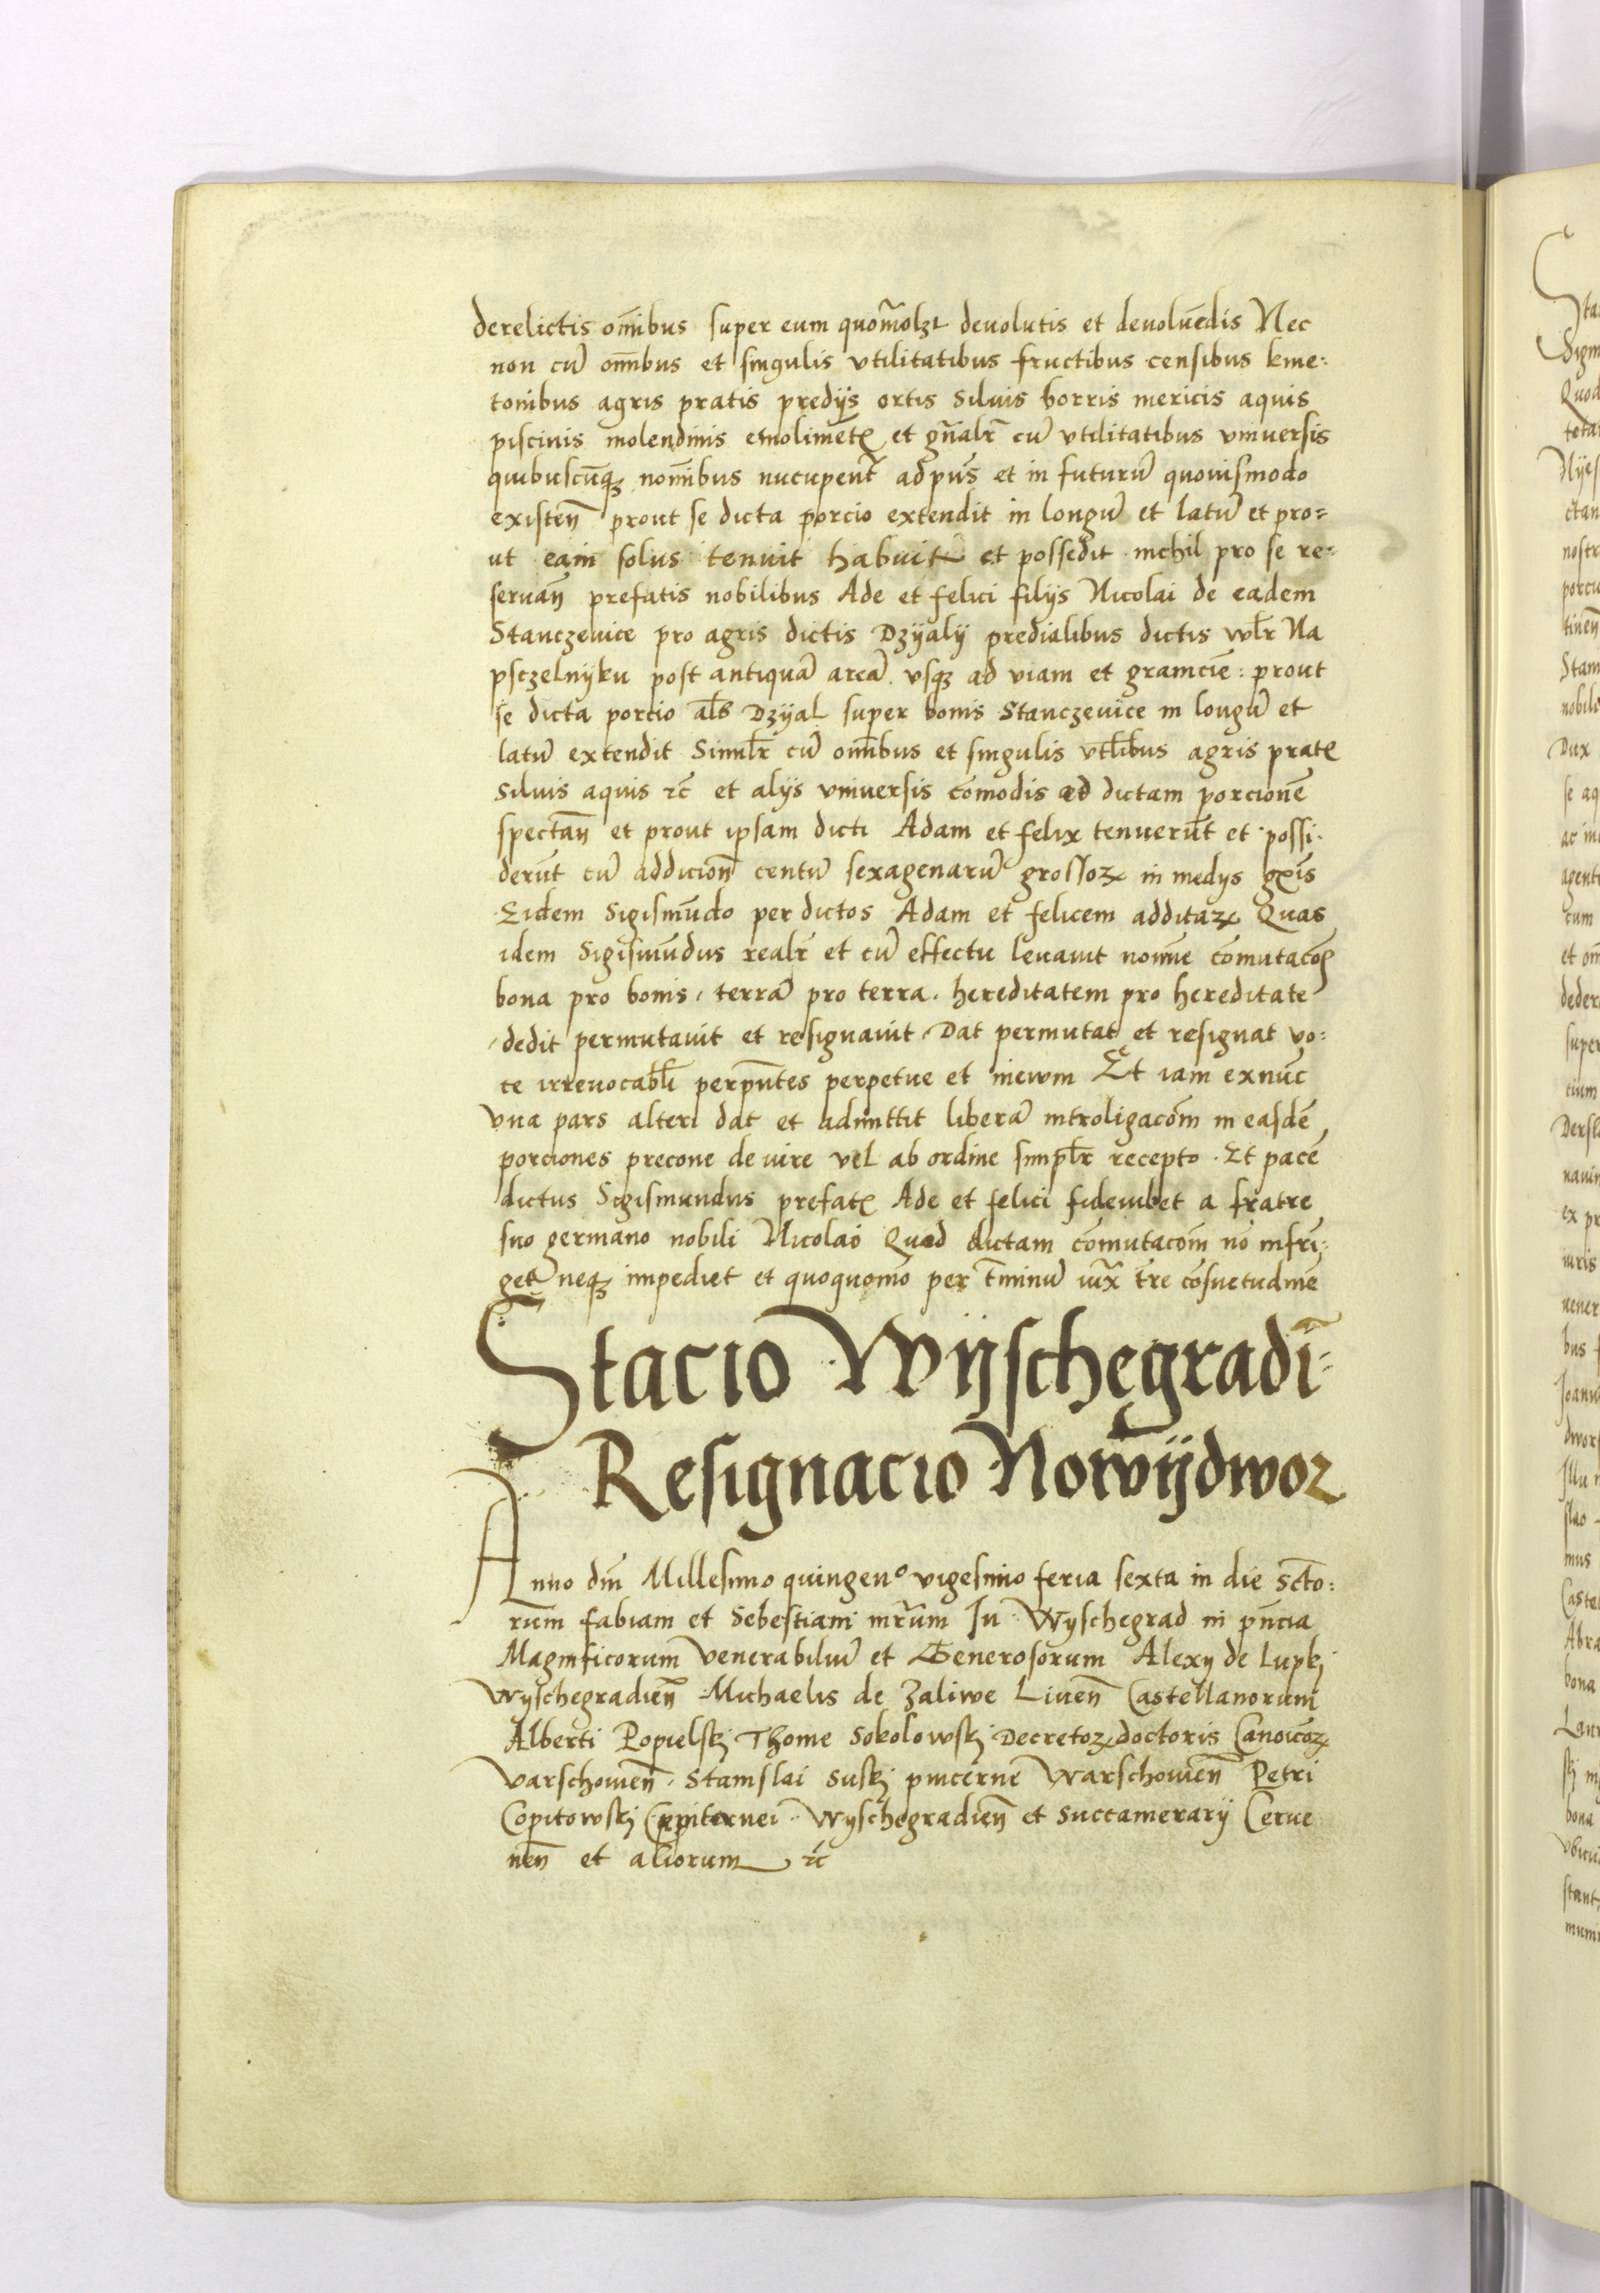 derelictis om̄ibus super eum quom̄olꝫt deuolutis et deuoluēdis Nec
non cū om̄ibus et singulis vtilitatibus fructibus censibus kme:
tonibus agris pratis predijs ortis siluis borris mericis aquis
piscinis molendinis emolimētꝭ et gn̄alr̄ cū vtilitatibus vniuersis
quibuscūqꝫ nom̄ibus nūcupent̄ ad pn̄s et in futurū quouismodo
existen̄ prout se dicta porcio extendit in longū et latū et pro=
ut eam solus tenuit habuit et possedit nichil pro se re=
seruan̄ prefatis nobilibus Ade et felici filijs Nicolai de eadem
Stanczevice pro agris dictis Dzyaly predialibus dictis wlr̄ Na
psczelnyku post antiquā arcā vsqꝫ ad viam et graniciē: prout
se dicta porcio als Dzyal super bonis Stanczevice in longū et
latū extendit Similr̄ cū om̄ibus et singulis vtl̄ibus agris pratꝭ
siluis aquis ⁊c̄ et alijs vniuersis com̄odis ad dictam porcionē
spectan̄ et prout ipsam dicti Adam et felix tenuerūt et possi:
derūt cū addicion̄ centū sexagenarū grossoꝝ in medijs gr̄is
Eidem Sigismūdo per dictos Adam et felicem additaꝝ Quas
idem Sigismūdus realr̄ et cū effectu leuauit nom̄ie com̄utacōis
bona pro bonis, terrā pro terra. hereditatem pro hereditate
dedit permutauit et resignauit. Dat permutat et resignat vo:
ce irreuocabl̄i perpn̄tes perpetue et in ewm Et iam exnūc
vna pars alteri dat et admittit liberā introligacōm in easdē
porciones precone de iure vel ab ordine simplr̄ recepto. Et pacē
dictus Sigismundus prefatꝭ Ade et felici fideiubet a fratre
suo germano nobili Nicolao Quod dictam com̄utacōm nō infri:
get neqꝫ impediet et quoquomō per t̄minū iux̄ tr̄e cōsuetudinē
Stacio Wyschegradi=
Resignacio Nowydwor
Anno dn̄i Millesimo quingenᵒ vigesimo feria sexta in die sctō:
rum fabiani et Sebestiani mr̄um In Wyschegrad in pn̄cia
Magnificorum Venerabiliū et Generosorum Alexy de Lupkj
Wyschegradien̄ Michaelis de Zaliwe Liuen̄ Castellanorum
Alberti Popielskj Thome Sokolowskj Decretoꝝ doctoris Canoicoꝝ
Varschouien̄. Stanislai Suskj pincerne Warschouien̄ Petri
Copitowskj Wyschegradien̄ et Succamerarij Cerue
nen̄ et aliorum ⁊c̄